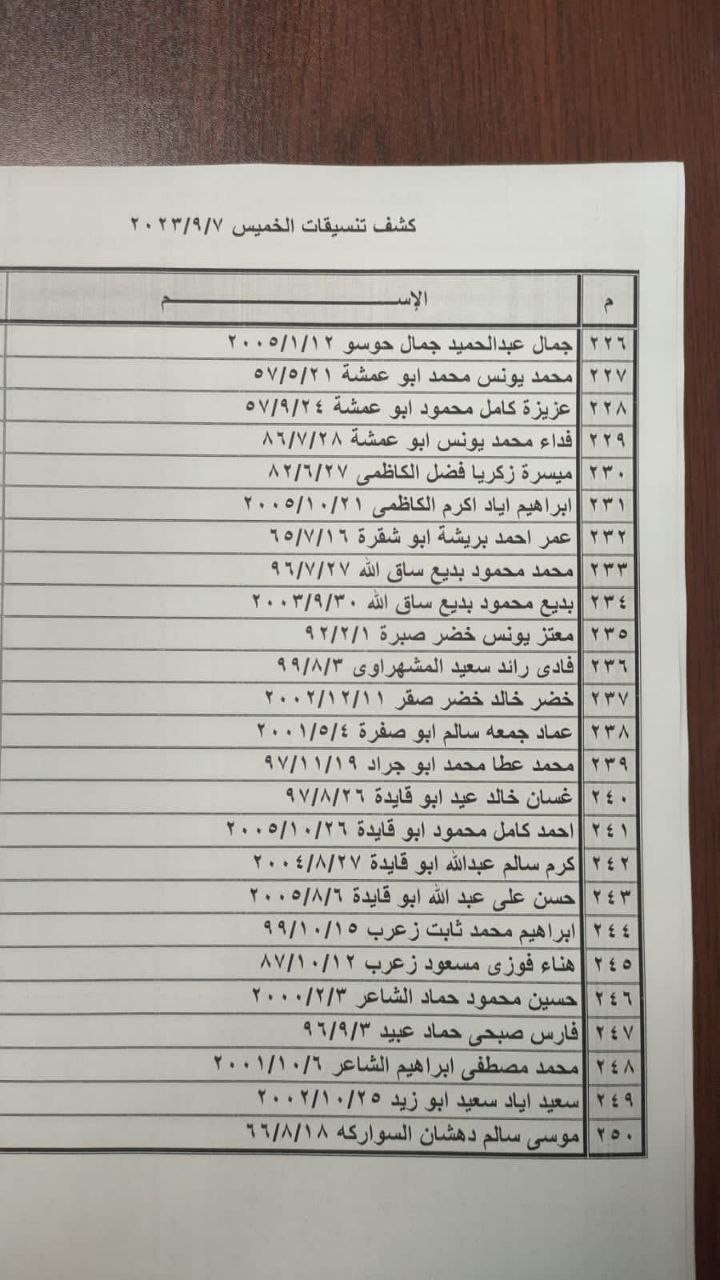 كشف تنسيقات الخميس ٢٠٢٣/٩/٧
م الإســـــــــــم
٢٢٦ جمال عبدالحميد جمال حوسو ٢٠٠٥/١/١٢
٢٢٧ محمد يونس محمد ابو عمشة ٥٧/٥/٢١
٢٢٨ عزيزة كامل محمود ابو عمشة ٥٧/٩/٢٤
٢٢٩ فداء محمد يونس ابو عمشة ٨٦/٧/٢٨
٢٣٠ ميسرة زكريا فضل الكاظمى ٨٢/٦/٢٧
٢٣١ ابراهيم اياد اكرم الكاظمى ٢٠٠٥/١٠/٢١
٢٣٢ عمر احمد بريشة ابو شقرة ٦٥/٧/١٦
٢٣٣ محمد محمود بديع ساق الله ٩٦/٧/٢٧
٢٣٤ بديع محمود بديع ساق الله ٢٠٠٣/٩/٣٠
٢٣٥ معتز يونس خضر صبرة ٩٢/٢/١
٢٣٦ فادى رائد سعيد المشهراوى ٩٩/٨/٣
٢٣٧ خضر خالد خضر صقر ٢٠٠٢/١٢/١١
٢٣٨ عماد جمعه سالم ابو صفرة ٢٠٠١/٥/٤
٢٣٩ محمد عطا محمد ابو جراد ٩٧/١١/١٩
٢٤٠ غسان خالد عيد ابو قايدة ٩٧/٨/٢٦
٢٤١ احمد كامل محمود ابو قايدة ٢٠٠٥/١٠/٢٦
٢٤٢ كرم سالم عبدالله ابو قايدة ٢٠٠٤/٨/٢٧
٢٤٣ حسن على عبد الله ابو قايدة ٢٠٠٥/٨/٦
٢٤٤ ابراهيم محمد ثابت زعرب ٩٩/١٠/١٥
٢٤٥ هناء فوزى مسعود زعرب ٨٧/١٠/١٢
٢٤٦ حسين محمود حماد الشاعر ٢٠٠٠/٢/٣
٢٤٧ فارس صبحى حماد عبيد ٩٦/٩/٣
٢٤٨ محمد مصطفى ابراهيم الشاعر ٢٠٠١/١٠/٦
٢٤٩ سعيد اياد سعيد ابو زيد ٢٠٠٢/١٠/٢٥
٢٥٠ موسى سالم دهشان السواركه ٦٦/٨/١٨